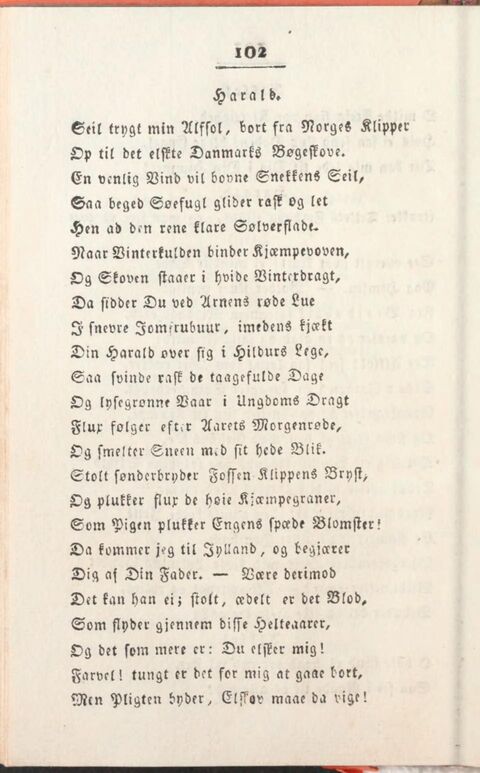 102
Harald.
Seil trygt min Alfsol, bort fra Norges Klipper
Op til det elskte Danmarks Bøgeskove.
En venlig Vind vil bovne Snekkens Seil,
Saa beged Søefugl glider rask og let
Hen ad den rene klare Sølverflade.
Naar Vinterkulden binder Kjæmpevoven,
Og Skoven staaer i hvide Vinterdragt,
Da sidder Du ved Arnens røde Lue
I snevre Jomfrubuur, imedens kjækt
Din Harald øver sig i Hildurs Lege,
Saa svinde rask de taagefulde Dage
Og lysegrønne Vaar i Ungdoms Dragt
Flux følger efter Aarets Morgenrøde,
Og smelter Sneen med sit hede Blik.
Stolt sønderbryder Fossen Klippens Bryst,
Og plukker flux de høie Kjæmpegraner,
Som Pigen plukker Engens spæde Blomster!
Da kommer jeg til Jylland, og begjærer
Dig af Din Fader. — Være derimod
Det kan han ei; stolt, ædelt er det Blod,
Som flyder gjennem disse Helteaarer,
Og det som mere er: Du elsker mig!
Farvel! tungt er det for mig at gaae bort,
Men Pligten byder, Elskov maae da vige!